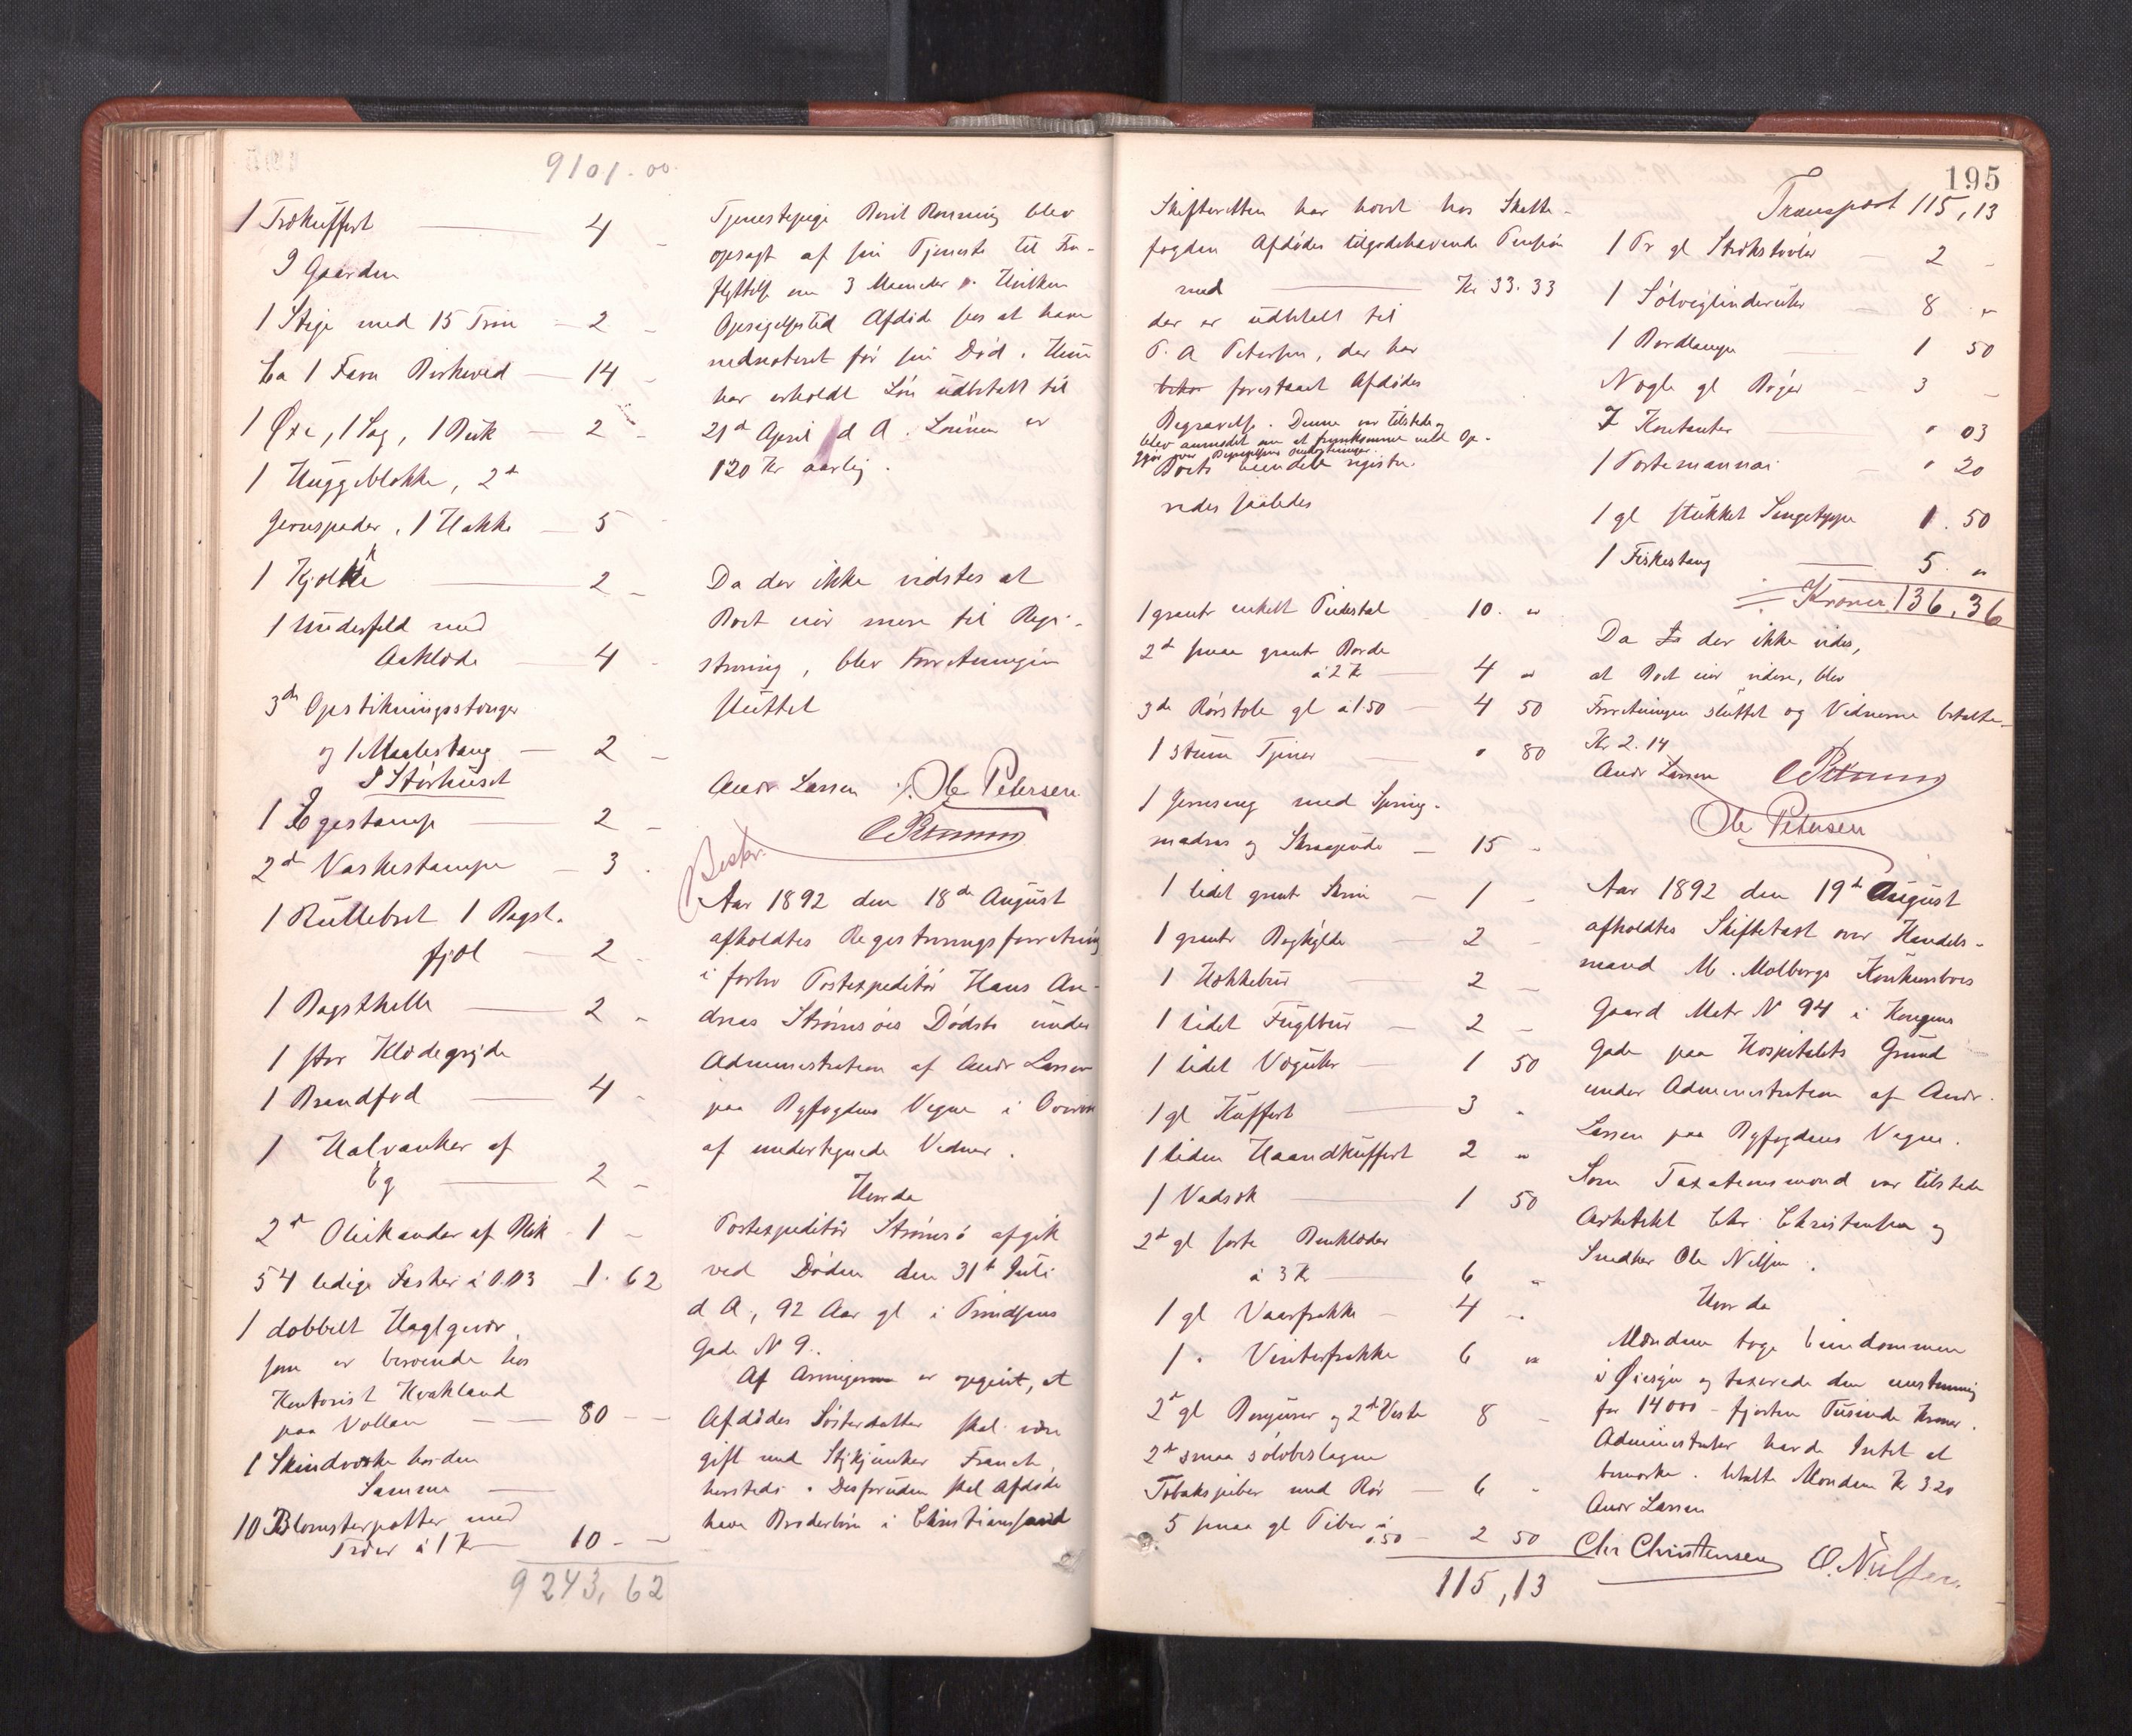 9101.00
1 Trækuffert 4 -
I Gaarden
1 Stige med 15 Trin - 2 -
Ca 1 Favn Birkeved - 14 -
1 Øxe, 1 Sag, 1 Buk - 2 -
1 Huggeblokke, 2d
Jernspader, 1 Hakke - 5 -
1 Kjælke - 2 -
1 Underfeld med
Aaklæde 4 -
3de Opstikningsstænger
og 1 Maalestang - 2 -
I Storhuset
1 Egestamp - 2 -
2de Vaskestampe - 3 -
1 Rullebret 1 Bagst-
fjøl - 2 -
1 Bagsthelle - 2 -
1 stor Klædegryde
1 Brandfod - 4 -
1 Halvanker af
Eg - 2 -
2de Oliekander af Blik - 1 -
54 ledige Flasker à 0.03 1.62
1 dobbelt Haglgevær,
som er beroende hos
Kontorist Kvakland
paa Vollan - 80 -
1 Skindværke hos den
Samme -
10 Blomsterpotter med
Træer à 1 Kr 10 -
9243,62
Tjenestepige Borit Rønning blev
opsagt af sin Tjeneste til Fra-
flyttelse om 3 Maaneder. Hvilken
Opsigelsestid Afdøde sees at have
nednoteret før sin Død. Hun
har erholdt Løn udbetalt til
21de April d A. Lønnen er
120 Kr aarlig.
Da der ikke vidstes at
Boet eier mere til Regi-
strering, blev Forretningen
sluttet
Andr Larsen Ole Petersen
Beskr.
Aar 1892 den 18de August
afholdtes Registreringsforretning
i forhv Postexpeditør Hans An-
dreas Strømsøes Dødsbo under
Administration af Andr Larsen
paa Byfogdens Vegne i Overvær
af undertegnede Vidner.
Hvorda
Postexpeditør Strømsø afgik
ved Døden den 31te Juli
d A, 92 Aar gl i Prindsens
Gade N 9.
Af Arvinger er opgivet, at
Afdødes Søsterdatter skal være
gift med Stykjunker Franck,
hersteds. Desforuden skal Afdøde
have Broderbørn i Christianssand
195
Skifteretten har hævet hos Skatte-
fogden Afdødes tilgodehavende Pension
med Kr 33.33
der er udbetalt til
P. A Petersen, der har
forestaaet Afdødes
Begravelse. Denne var tilstede og
blev anmodet om at fremkomme med Op-
gjør over Begravelsens Omkostninger.
Boets Eiendele registre-
redes saaledes
1 grønt enkelt Pidestal 10. "
2de smaa grønt Borde
à 2 Kr 4 "
3de Rørstole gl à 1.50 - 4 50
1 stum Tjener " 80
1 Jernseng med Spring-
madras og Skraapude - 15 -
1 lidet grønt Skrin - 1 -
1 grønt Boghylde 2 -
1 Hækkebur 2 -
1 lidet Fuglbur - 2 -
1 lidet Væguhr - 1 50
1 gl Kuffert 3 -
1 liden Haandkuffert 2 "
1 Vadsæk 1 50
2de gl sorte Benklæder
à 3 Kr 6 "
1 gl Vaarfrakke - 4 "
1 " Vinterfrakke 6 "
2de gl Bonjourer og 2de Veste 8 -
2de smaa sølvbeslagne
Tobakspiber med Rør - 6 -
5 smaa gl Piber à
0.50 - 2 50
115,13
Transport 115,13
1 Pr gl Strikstøvler 2 -
1 Sølvcylinderuhr 8 "
1 Bordlampe 1 50
Nogle gl Bøger 3 -
I Kontanter " 03
1 Portemonnai " 20
1 gl stukket Sengetæppe 1.50
1 Fiskestang 5. "
Kroner 136,36
Da der ikke vides,
at Boet eier videre, blev
Forretningen sluttet og Vidnerne betalte
Kr 2.14
Andr Larsen
Ole Petersen
Aar 1892 den 19de August
afholdtes Skiftetaxt over Handels-
mand M. Molbergs Konkursboes
Gaard Matr N 94 i Kongens
Gade paa Hospitalets Grund
under Administration af Andr.
Larsen paa Byfogdens Vegne.
Som Taxationsmænd var tilstede
Arkitekt Chr. Christensen og
Snedker Ole Nilsen.
Hvorda
Mændene toge Eiendommen
i Øiesyn og taxerede den enstemmig
for 14000 - fjorten Tusinde Kroner.
Administrator havde Intet at
bemærke. betalte Mændene Kr 3.20
Andr Larsen
Chr Christensen O. Nilsen.